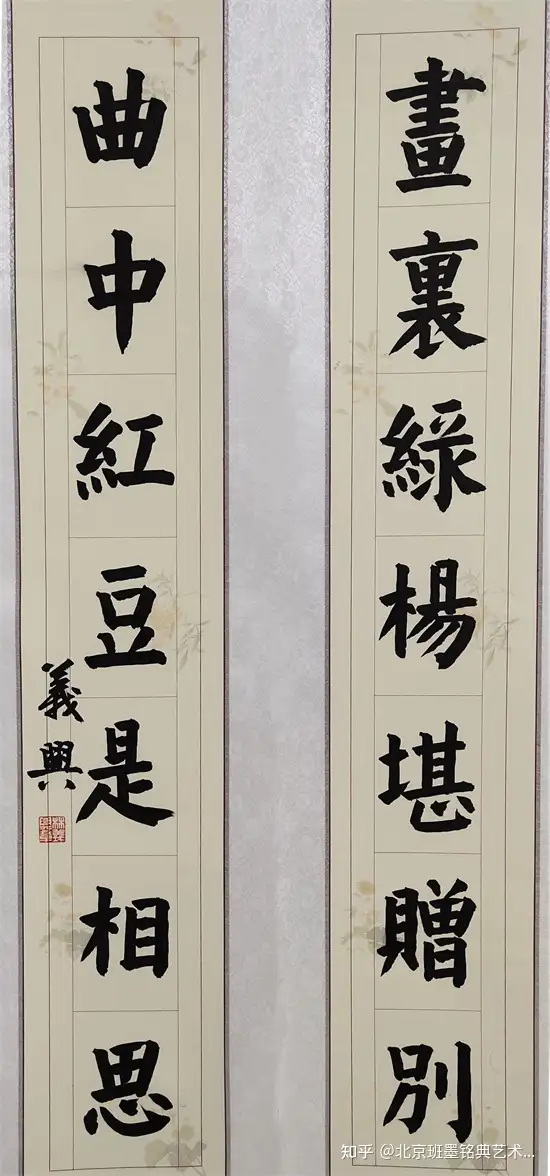 畫裏綠楊堪贈別
曲中紅豆是相思
義興
知乎 @北京班墨铭典艺术...